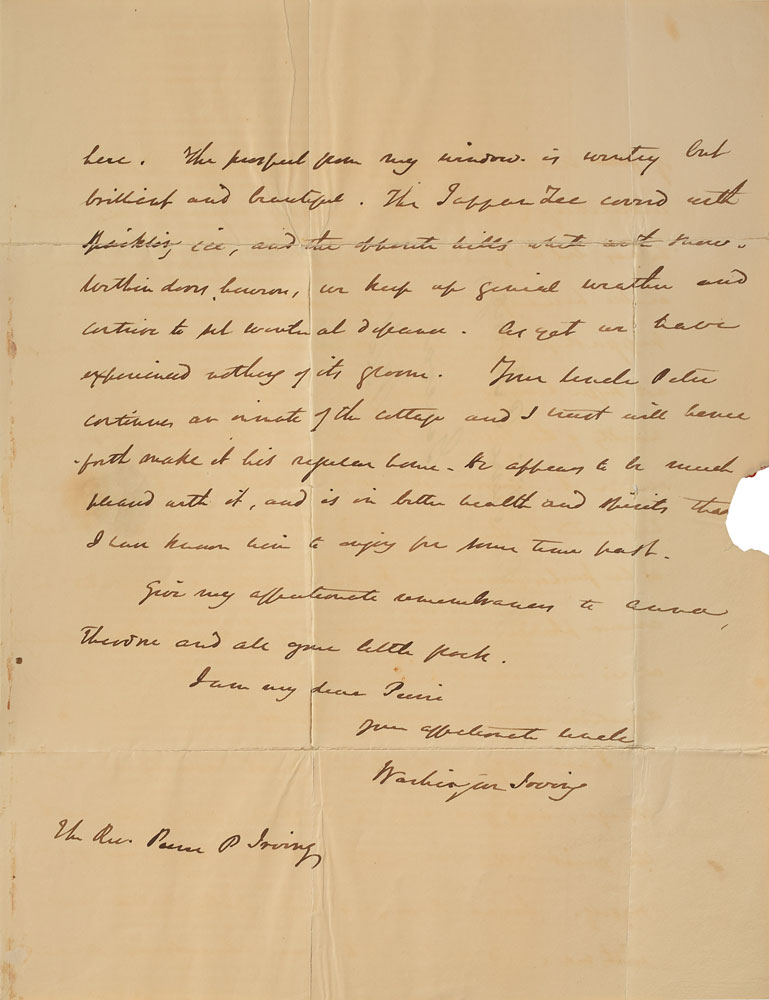 here. The prospect from my window is wintry but
brilliant and beautiful. The Tappan Zee coverd with
sparkling ice, and the opposite hills white with snow.
Within doors, however, we keep up genial weather and
continue to set winter at defiance. As yet we have
experienced nothing of its gloom. Your Uncle Peter
continues an inmate of the cottage and I trust will hence
forth make it his regular home. He appears to be much
pleased with it, and is in better health and spirits than
I have known him to enjoy for some time past.
Give my affectionate remembrances to Anna,
and all your little flock.
I am my dear Pierre
Your affectionate uncle
Washington Irving
The Rev. Pierre P Irving